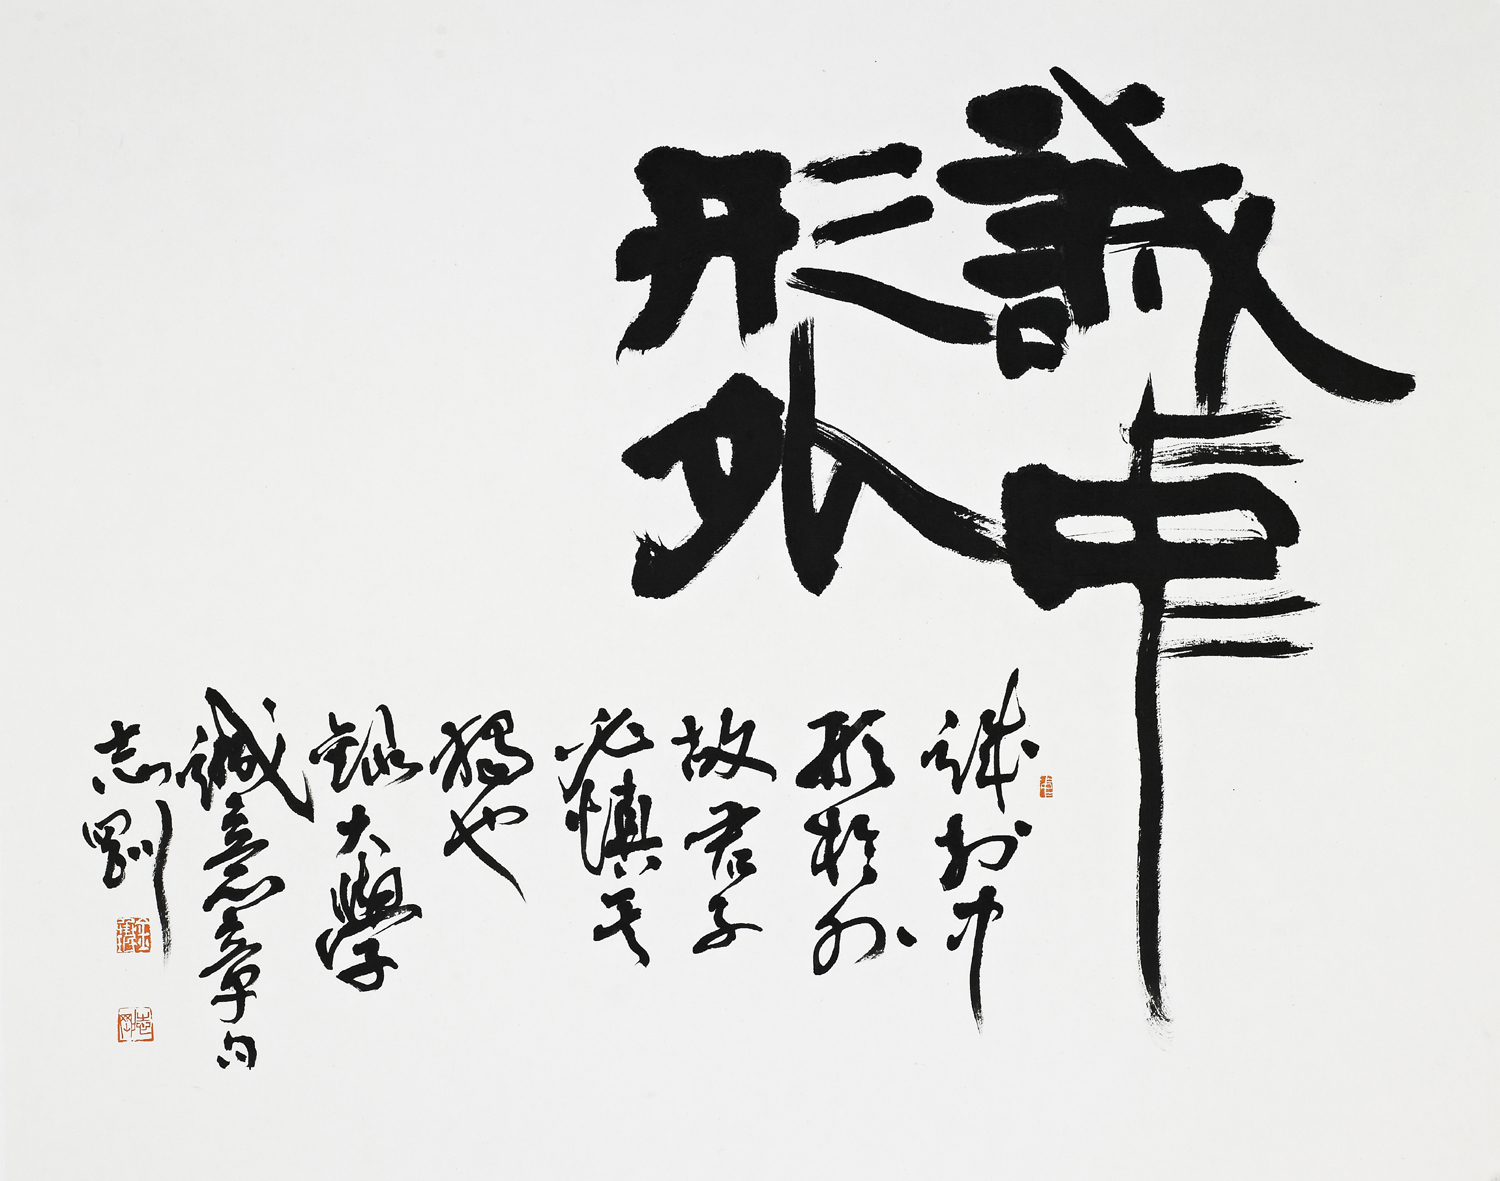 誠中
形外
誠於中
形於外
故君子
必慎其
獨也
錄大學
誠意章句
志剛